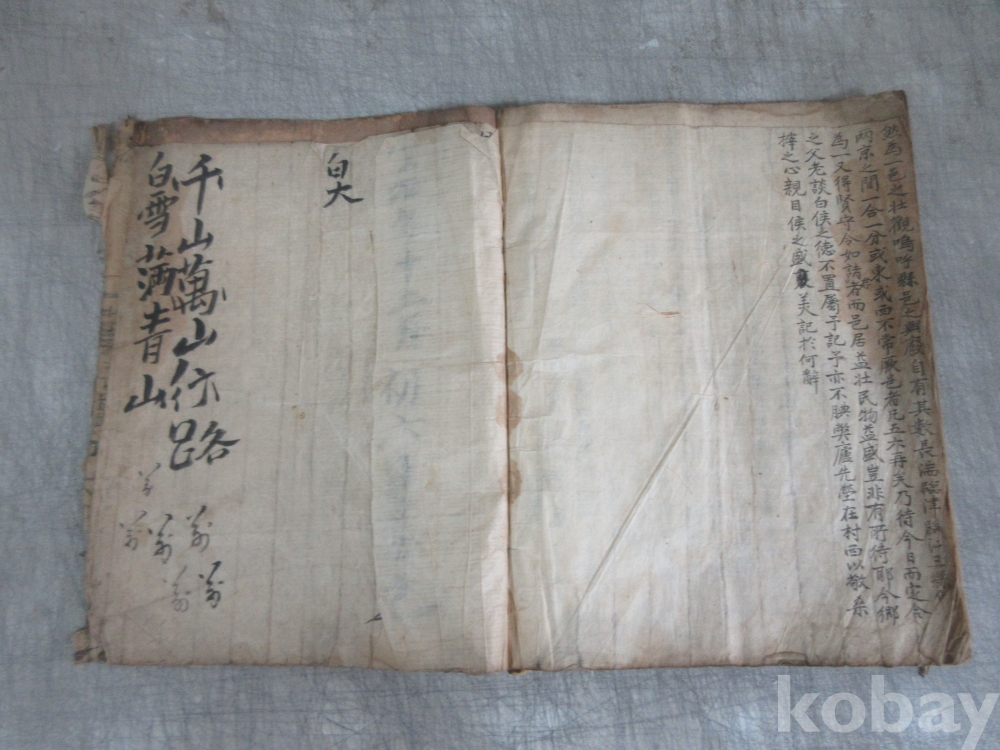 然爲一邑之壯觀嗚呼縣邑之興廢自有其數長湍臨津
兩京之間一合一分或東或西不常厥邑者凡五六再矣乃待今日而定合
爲一又得賢守令如諸君者而邑居益壯民物益盛豈非有所待耶今鄕
之父老談白侯之德不置屬予記予亦不腆弊廬先塋在村西以敬桑
梓之心親目侯之盛美記於何辭
白大
千山萬山行路
白雪滿青山
kobay